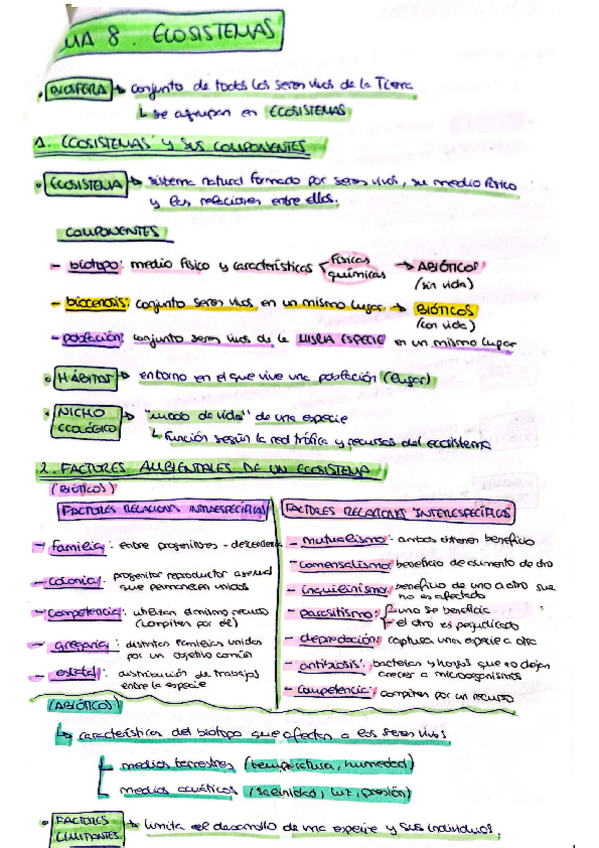 MA 8. ECOSISTEMAS
• BIOSFERA → conjunto de todos los seres vivos de la Tierra
↳ se agrupan en ECOSISTEMAS
1. ECOSISTEMAS Y SUS COMPONENTES
• ECOSISTEMA → sistema natural formado por seres vivos, su medio físico
y las relaciones entre ellos.
COMPONENTES
- biotopo: medio físico y características físicas químicas → ABIÓTICOS
(sin vida)
- biocenosis: conjunto seres vivos en un mismo lugar → BIÓTICOS
(con vida)
- población: conjunto seres vivos de la MISMA ESPECIE en un mismo lugar
• HÁBITAT → entorno en el que vive una población (lugar)
• NICHO ECOLÓGICO → "modo de vida" de una especie
↳ función según la red trófica y recursos del ecosistema
2. FACTORES AMBIENTALES DE UN ECOSISTEMA
(BIÓTICOS)
FACTORES RELACIONES INTRAESPECÍFICAS
- familia: entre progenitores - descendencia
- colonia: progenitor reproductor asexual
que permanecen unidos
- competencia: utilizan el mismo recurso
(compiten por él)
- gregaria: distintas familias unidas
por un objetivo común
- estatal: distribución de trabajos
entre la especie
FACTORES RELACIONES INTERESPECÍFICAS
- mutualismo: ambos obtienen beneficio
- comensalismo: beneficio de alimento de otro
- inquilinismo: beneficio de uno a otro que
no es afectado
- parasitismo: uno se beneficia
el otro es perjudicado
- depredación: captura una especie a otra
- antibiosis: bacterias y hongos que no dejan
crecer a microorganismos
- competencia: compiten por un recurso
(ABIÓTICOS)
↳ características del biotopo que afectan a los seres vivos
medios terrestres (temperatura, humedad)
medios acuáticos (salinidad, luz, presión)
• FACTORES LIMITANTES → limita el desarrollo de una especie y sus individuos.